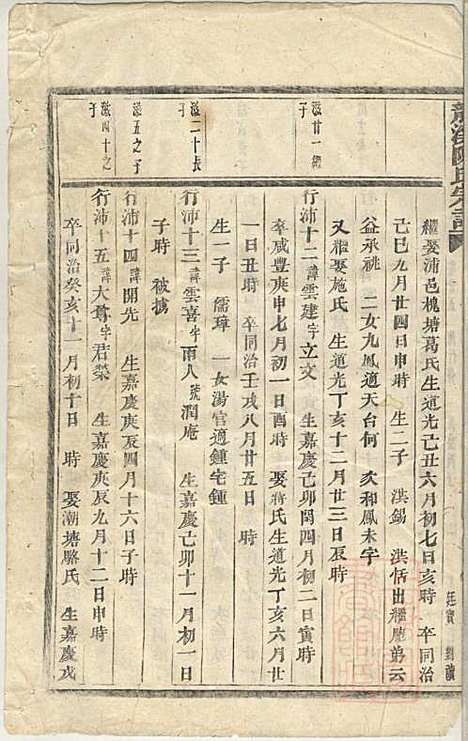 龍溪陳氏宗譜
廷寶 劉讀
繼娶浦邑槐塘葛氏生道光己丑六月初七日亥時 卒同治
己巳九月廿四日申時 生二子 洪錫 洪恬出繼應弟云
益承祧 二女九鳳適天台何 次和鳳未字
又繼娶施氏 生道光丁亥十二月廿三日辰時
滋廿一繼子
行沛十二諱雲建字立文 生嘉慶己卯閏四月初二日寅時
卒咸豐庚申七月初一日酉時 娶蔣氏生道光丁亥六月廿
一日丑時 卒同治壬戌八月廿五日 時
生一子 儒璋 一女湯官適鍾宅鍾
滋二十長子
行沛十三諱雲喜字雨人號潤庵 生嘉慶己卯十一月初一日
子時 被擄
滋五之子
行沛十四諱開先 生嘉慶庚辰四月十六日子時
滋四十之子
行沛十五諱大尊字君榮 生嘉慶庚辰九月十二日申時
卒同治癸亥十一月初十日 時 娶潮塘駱氏 生嘉慶戊